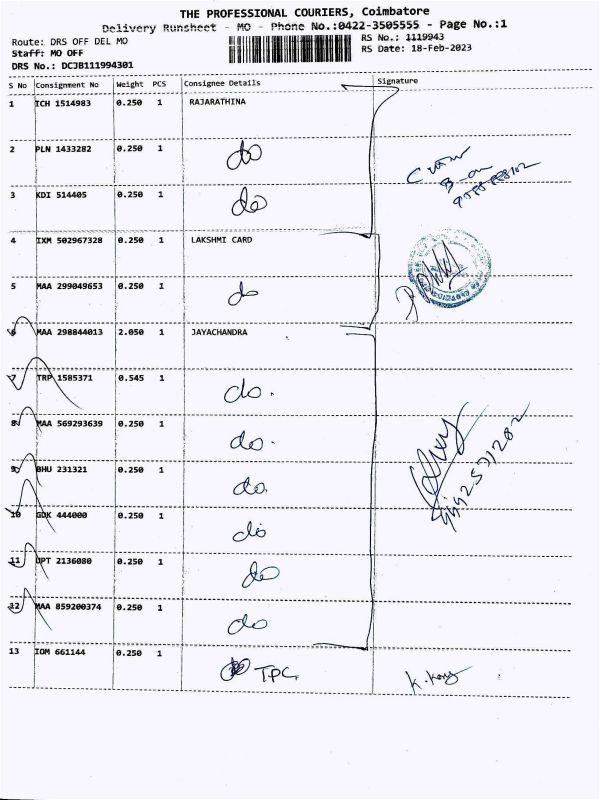 THE PROFESSIONAL COURIERS, Coimbatore
Delivery Runsheet - MO - Phone No.:0422-3505555 - Page No.:1
Route: DRS OFF DEL MO
RS No.: 1119943
Staff: MO OFF
RS Date: 18-Feb-2023
DRS No.: DCJB111994301
S No Consignment No Weight PCS Consignee Details Signature
1 ICH 1514983 0.250 1 RAJARATHINA
2 PLN 1433282 0.250 1 do
3 KDI 514405 0.250 1 do
4 IXM 502967328 0.250 1 LAKSHMI CARD
5 MAA 299049653 0.250 1 do
6 MAA 298844013 2.050 1 JAYACHANDRA
7 TRP 1585371 0.545 1 do.
8 MAA 569293639 0.250 1 do.
9 BHU 231321 0.250 1 do.
10 GDK 444000 0.250 1 do
11 UPT 2136080 0.250 1 do
12 MAA 859200374 0.250 1 do
13 IOM 661144 0.250 1 TPC